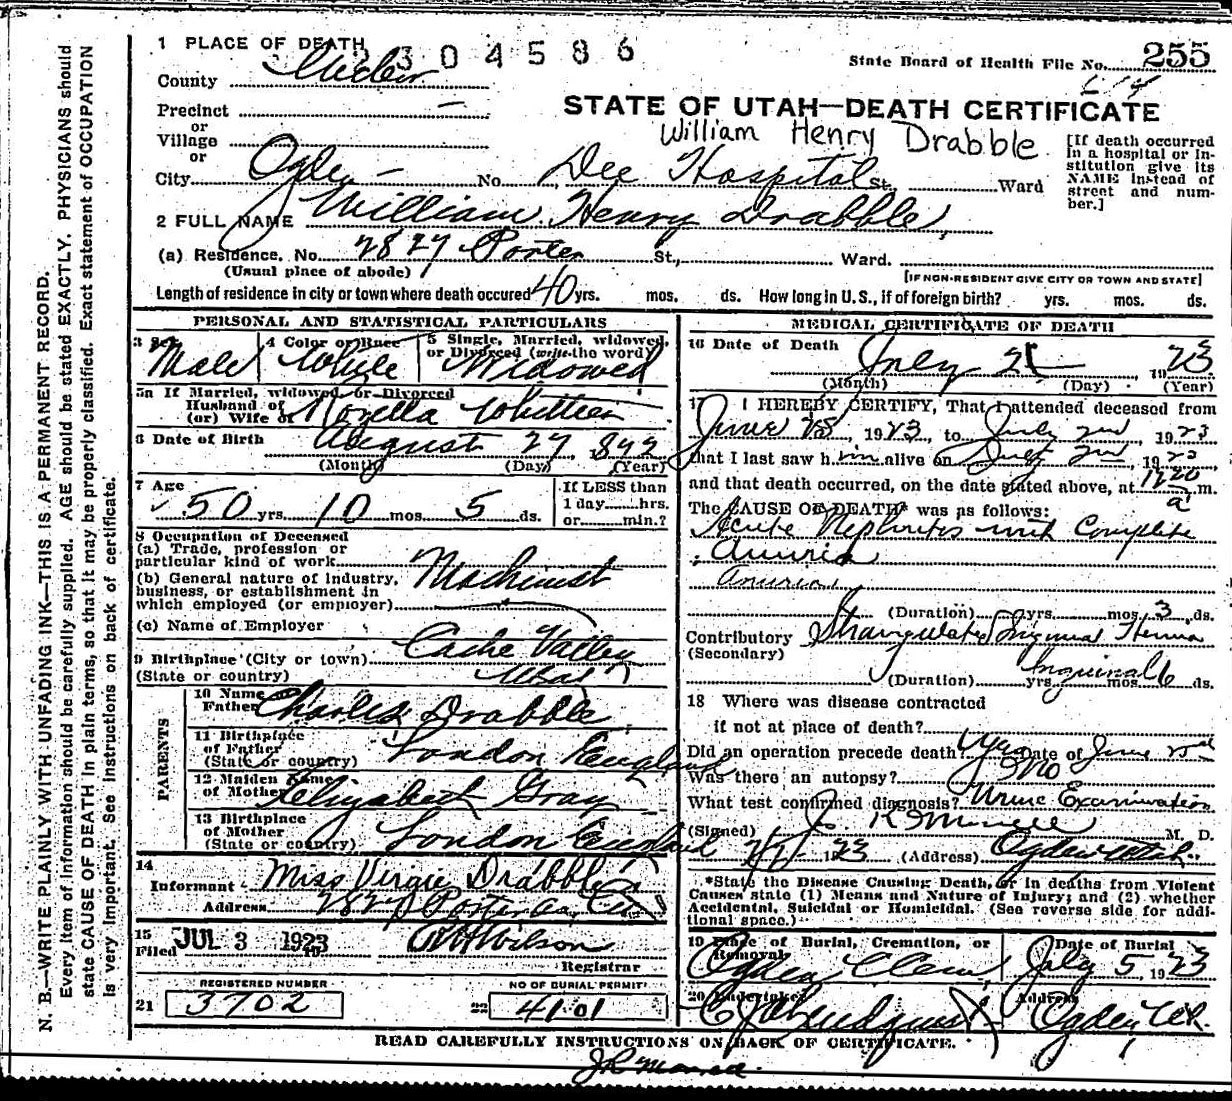 1 PLACE OF DEATH 2304586
State Board of Health File No. 255
County Weber
Precinct —
STATE OF UTAH—DEATH CERTIFICATE
or
William Henry Drabble
Village
or
City Ogden — No. Dee Hospital St. Ward
[If death occurred
in a hospital or in-
stitution give its
NAME instead of
street and num-
ber.]
2 FULL NAME William Henry Drabble
(a) Residence. No. 2827 Porter St., Ward.
(Usual place of abode) [IF NON-RESIDENT GIVE CITY OR TOWN AND STATE]
Length of residence in city or town where death occured 40 yrs. mos. ds. How long in U. S., if of foreign birth? yrs. mos. ds.
PERSONAL AND STATISTICAL PARTICULARS
3 Sex 4 Color or Race 5 Single, Married, widowed,
or Divorced (write the word)
Male White Widowed
5a If Married, widowed or Divorced
Husband of
(or) Wife of
6 Date of Birth August 27
(Month) (Day) (Year)
7 Age If LESS than
1 day hrs.
50 yrs. 10 mos. 5 ds. or min.?
8 Occupation of Deceased
(a) Trade, profession or
particular kind of work Machinist
(b) General nature of industry,
business, or establishment in
which employed (or employer)
(c) Name of Employer
9 Birthplace (City or town) Cache Valley
(State or country) Utah
PARENTS
10 Name of
Father Charles Drabble
11 Birthplace
of Father
(State or country) London England
12 Maiden Name
of Mother Elizabeth Gray
13 Birthplace
of Mother
(State or country) London England
14
Informant Miss Virgie Drabble
Address 2827 Porter
15
Filed JUL 3 1923 Wilson
Registrar
REGISTERED NUMBER NO OF BURIAL PERMIT
21 3702 22 4101
MEDICAL CERTIFICATE OF DEATH
16 Date of Death July 2 1923
(Month) (Day) (Year)
17 I HEREBY CERTIFY, That I attended deceased from
June 28, 1923, to July 2nd, 1923
that I last saw him alive on July 2nd, 1923
and that death occurred, on the date stated above, at 1220 a m.
The CAUSE OF DEATH* was as follows:
Acute Nephritis with Complete
Anuria
Anuria
(Duration) yrs. mos. 3 ds.
Contributory Strangulated Inguinal Hernia
(Secondary)
Inguinal
(Duration) yrs. mos. 6 ds.
18 Where was disease contracted
if not at place of death?
Did an operation precede death? Yes Date of June
Was there an autopsy? No
What test confirmed diagnosis? Urine Examination
(Signed) M. D.
1923 (Address) Ogden Utah.
*State the Disease Causing Death, or in deaths from Violent
Causes state (1) Means and Nature of Injury; and (2) whether
Accidental, Suicidal or Homicidal. (See reverse side for addi-
tional space.)
19 Place of Burial, Cremation, or
Removal
Date of Burial
Ogden July 5 1923
20 Undertaker Address
Ogden, Ut.
READ CAREFULLY INSTRUCTIONS ON BACK OF CERTIFICATE.
N. B.—WRITE PLAINLY WITH UNFADING INK—THIS IS A PERMANENT RECORD.
Every item of information should be carefully supplied. AGE should be stated EXACTLY. PHYSICIANS should
state CAUSE OF DEATH in plain terms, so that it may be properly classified. Exact statement of OCCUPATION
is very important. See instructions on back of certificate.